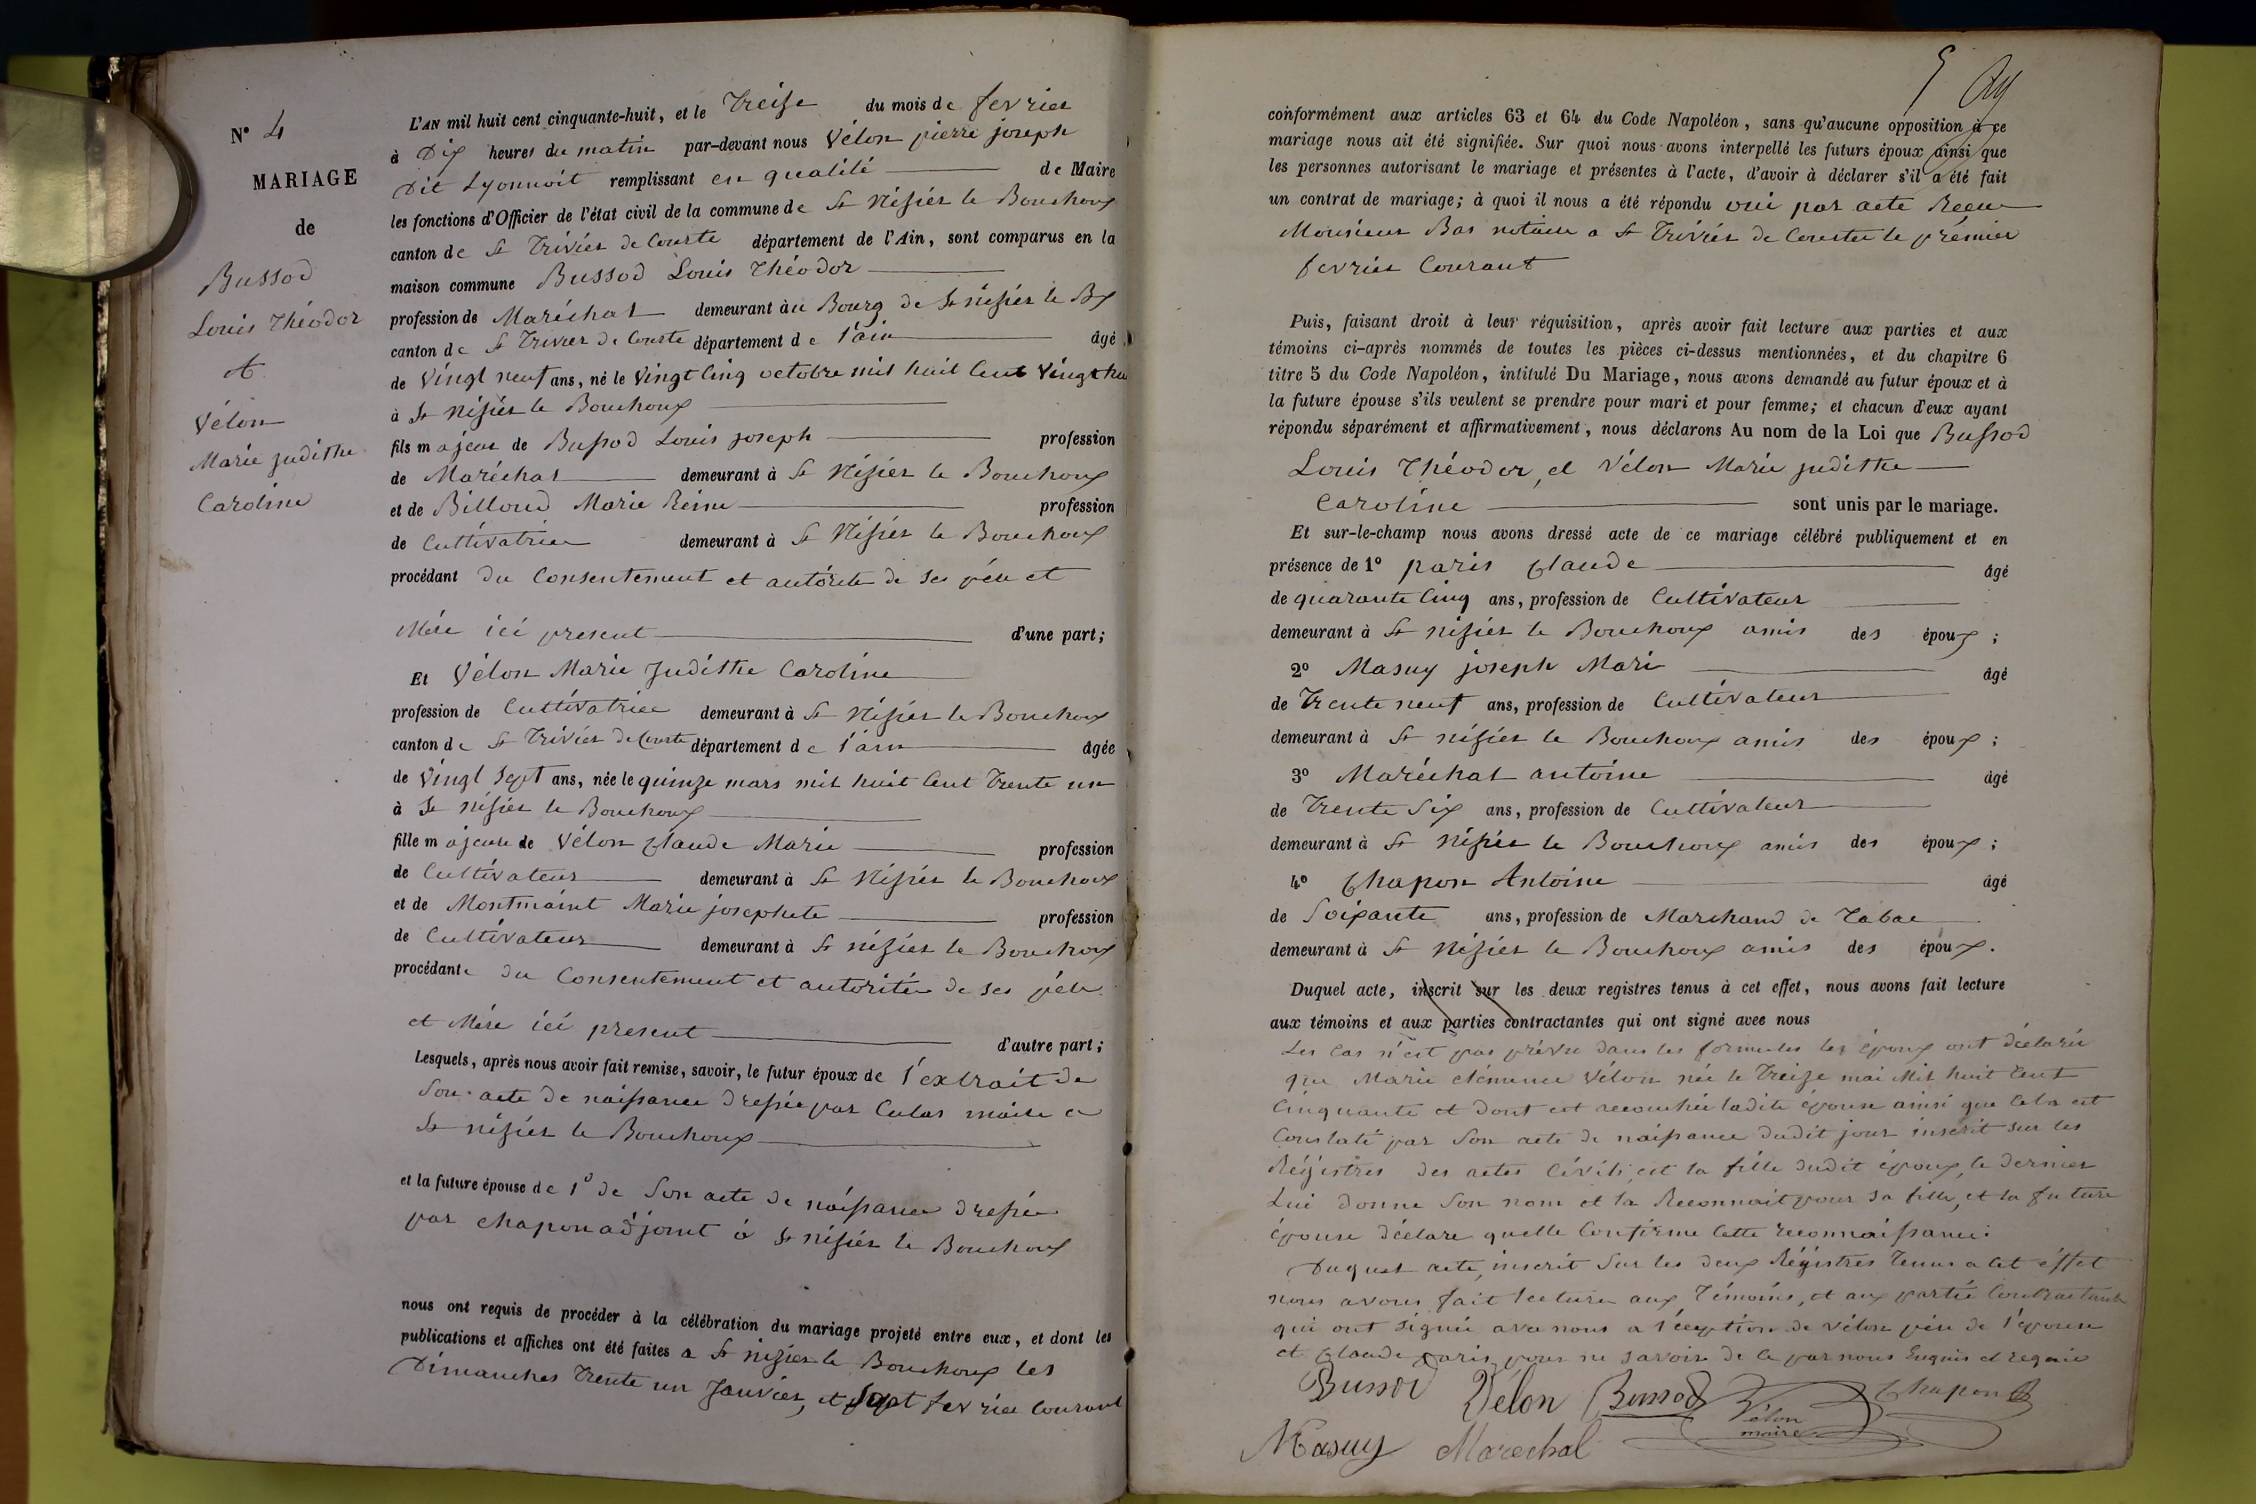 N° 4
MARIAGE
de
Bussod
Louis Théodor
et
Vélon
Marie judithe
Caroline
L'AN mil huit cent cinquante-huit, et le Treize du mois de fevrier
à Dix heures du matin par-devant nous Vélon pierre joseph
Dit Lyonnoit remplissant en qualité de Maire
les fonctions d'Officier de l'état civil de la commune de St Nizier le Bouchoux
canton de St Trivier de Courte département de l'Ain, sont comparus en la
maison commune Bussod Louis Théodor
profession de Maréchal demeurant au Bourg de St nizier le Bx
canton de St Trivier de Courte département de l'ain âgé
de vingt neuf ans, né le vingt Cinq octobre mil huit Cent vingt hu
à St Nizier le Bouchoux
fils majeur de Bussod Louis joseph profession
de Maréchal demeurant à St Nizier le Bouchoux
et de Billoud Marie Reine profession
de Cultivatrice demeurant à St Nizier le Bouchoux
procédant du Consentement et autórité de ses pére et
Mére ici present d'une part;
Et Vélon Marie Judithe Caroline
profession de Cultivatrice demeurant à St Nizier le Bouchoux
canton de St Trivier de Courte département de l'ain âgée
de vingt sept ans, née le quinze mars mil huit Cent Trente un
à St nizier le Bouchoux
fille majeure de Vélon Claude Marie profession
de Cultivateur demeurant à St Nizier le Bouchoux
et de Montmaint Marie josephete profession
de Cultivateur demeurant à St nizier le Bouchoux
procédante du Consentement et autoritée de ses pére
et Mére ici present d'autre part;
Lesquels, après nous avoir fait remise, savoir, le futur époux de l'extrait de
Son acte de naissance dressée par Culas maire a
St nizier le Bouchoux
et la future épouse de 1° de Son acte de naissance dressée
par chapon adjoint à St nizier le Bouchoux
nous ont requis de procéder à la célébration du mariage projeté entre eux, et dont les
publications et affiches ont été faites a St nizier le Bouchoux les
Dimanches Trente un Janvier, et Sept fevrier Courant
5
conformément aux articles 63 et 64 du Code Napoléon, sans qu'aucune opposition à ce
mariage nous ait été signifiée. Sur quoi nous avons interpellé les futurs époux ainsi que
les personnes autorisant le mariage et présentes à l'acte, d'avoir à déclarer s'il a été fait
un contrat de mariage; à quoi il nous a été répondu oui par acte Recu
Monsieur Bas notaire a St Trivier de Courtes le prémier
fevrier Courant
Puis, faisant droit à leur réquisition, après avoir fait lecture aux parties et aux
témoins ci-après nommés de toutes les pièces ci-dessus mentionnées, et du chapitre 6
titre 5 du Code Napoléon, intitulé Du Mariage, nous avons demandé au futur époux et à
la future épouse s'ils veulent se prendre pour mari et pour femme; et chacun d'eux ayant
répondu séparément et affirmativement, nous déclarons Au nom de la Loi que Bussod
Louis Théodor, et Vélon Marie judithe
Caroline sont unis par le mariage.
Et sur-le-champ nous avons dressé acte de ce mariage célébré publiquement et en
présence de 1° paris Claude âgé
de quarante Cinq ans, profession de Cultivateur
demeurant à St nizier le Bouchoux amis des époux ;
2° Masuy joseph Mari âgé
de Trente neuf ans, profession de Cultivateur
demeurant à St nizier le Bouchoux amis des époux ;
3° Maréchal antoine âgé
de Trente Six ans, profession de Cultivateur
demeurant à St Nizier le Bouchoux amis des époux ;
4° Chapon Antoine âgé
de Soixante ans, profession de Marchand de Tabac
demeurant à St Nizier le Bouchoux amis des époux.
Duquel acte, inscrit sur les deux registres tenus à cet effet, nous avons fait lecture
aux témoins et aux parties contractantes qui ont signé avec nous
Les Cas n'est pas prévu dans les formules les époux ont déclaré
que Marie clémence Vélon née le Treize mai Mil huit Cent
Cinquante et dont est accouchée ladite épouse ainsi que Cela est
Constaté par Son acte de naissance dudit jour inscrit sur les
Régistres des actes Civils, est la fille dudit époux, le dernier
Lui donne Son nom et la Reconnait pour sa fille, et la future
épouse déclare quelle Confirme Cette reconnaissance.
Duquel acte, inscrit Sur les deux Régistres Tenus a Cet éffet
nous avons fait lecture aux Témoins, et aux partie Contractante
qui ont signé avec nous a l'éception de vélon pére de l'épouse
et Claude paris pour ne savoir de ce par nous Enquis et requis
Bussod Velon Bussod Vélon maire Chapon
Masuy Marechal